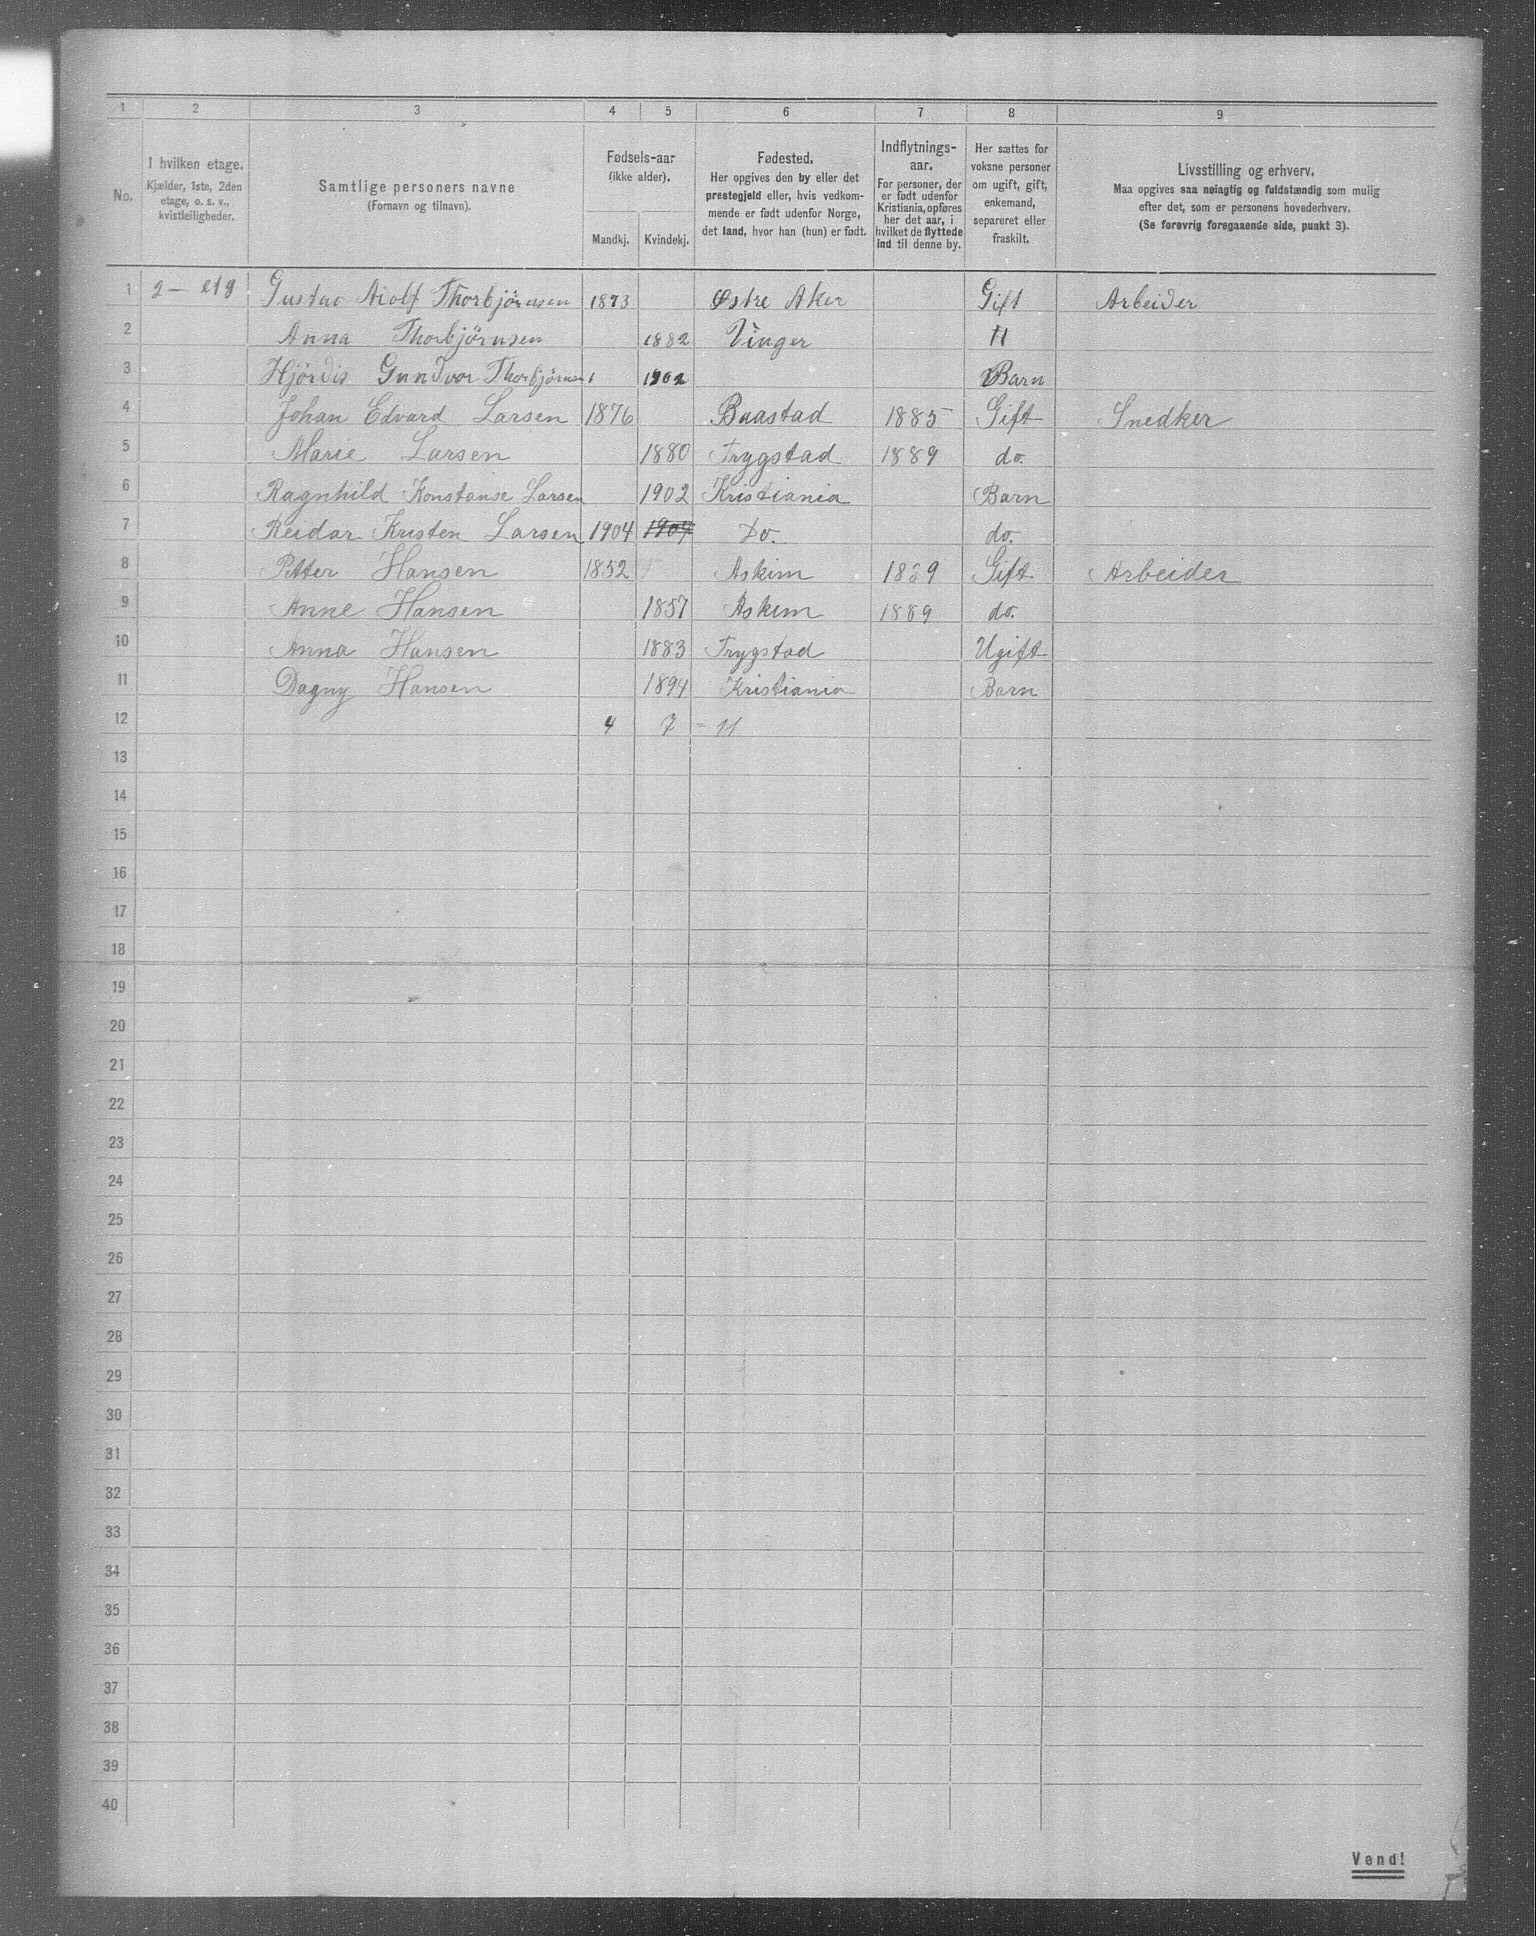 1 2 3 4 5 6 7 8 9
No. I hvilken etage. Kjælder, 1ste, 2den etage, o. s. v., kvistleiligheder. Samtlige personers navne (Fornavn og tilnavn). Fødsels-aar (ikke alder). Mandkj. Kvindekj. Fødested. Her opgives den by eller det prestegjeld eller, hvis vedkommende er født udenfor Norge, det land, hvor han (hun) er født. Indflytnings-aar. For personer, der er født udenfor Kristiania, opføres her det aar, i hvilket de flyttede ind til denne by. Her sættes for voksne personer om ugift, gift, enkemand, separeret eller fraskilt. Livsstilling og erhverv. Maa opgives saa nøiagtig og fuldstændig som mulig efter det, som er personens hovederhverv. (Se forøvrig foregaaende side, punkt 3).
1 2 – etg Gustav Adolf Thorbjörnsen 1873 Østre Aker Gift Arbeider
2 Anna Thorbjörnsen 1882 Vinger 〃
3 Hjördis Gundvor Thorbjørnsen 1902 Barn
4 Johan Edvard Larsen 1876 Baastad 1885 Gift Snedker
5 Marie Larsen 1880 Trygstad 1889 do.
6 Ragnhild Konstanse Larsen 1902 Kristiania Barn
7 Reidar Kristen Larsen 1904 1904 Do. do.
8 Petter Hansen 1852 Askim 1889 Gift Arbeider
9 Anne Hansen 1857 Askim 1889 do.
10 Anna Hansen 1883 Trygstad Ugift
11 Dagny Hansen 1894 Kristiania Barn
12 4 7 = 11
13
14
15
16
17
18
19
20
21
22
23
24
25
26
27
28
29
30
31
32
33
34
35
36
37
38
39
40
Vend!